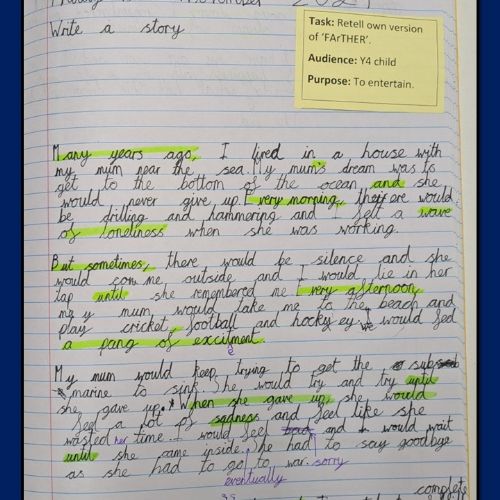 2021
Write a story
Task: Retell own version
of 'FArTHER'.
Audience: Y4 child
Purpose: To entertain.
Many years ago, I lived in a house with
my mum near the sea. My mum's dream was to
get to the bottom of the ocean and she
would never give up. Every morning, there would
be drilling and hammering and I felt a wave
of loneliness when she was working.
But sometimes, there would be silence and she
would come outside and I would lie in her
lap until she remembered me. Every afternoon,
my mum would take me to the beach and
play cricket, football and hockey. I would feel
a pang of excitment.
e
My mum would keep trying to get the sub
marine to sink. She would try and try until
she gave up. When she gave up, she would
feel a lot of sadness and feel like she
wasted her time. I would feel bad and I would wait
until she came inside. She had to say goodbye
as she had to go to war. sorry
eventually
complete